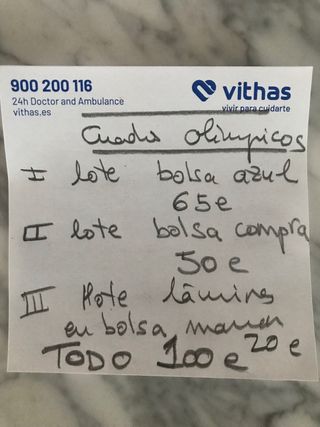 900 200 116
24h Doctor and Ambulance
vithas.es
vithas
vivir para cuidarte
Cuadros olimpicos
I lote bolsa azul
65e
II lote bolsa compra
50 e
III lote láminas
en bolsa
20 e
TODO 100 e